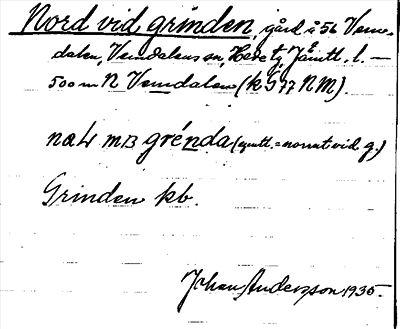 Nord vid grinden, gård å 56 Vem-
dalen, Vemdalens sn, Hede tg, Jämtl. l. —
500 m N Vemdalen (k G 77 NM).
grénda (jmtl. = norrut vid g.)
Grinden kb.
Johan Andersson 1935.